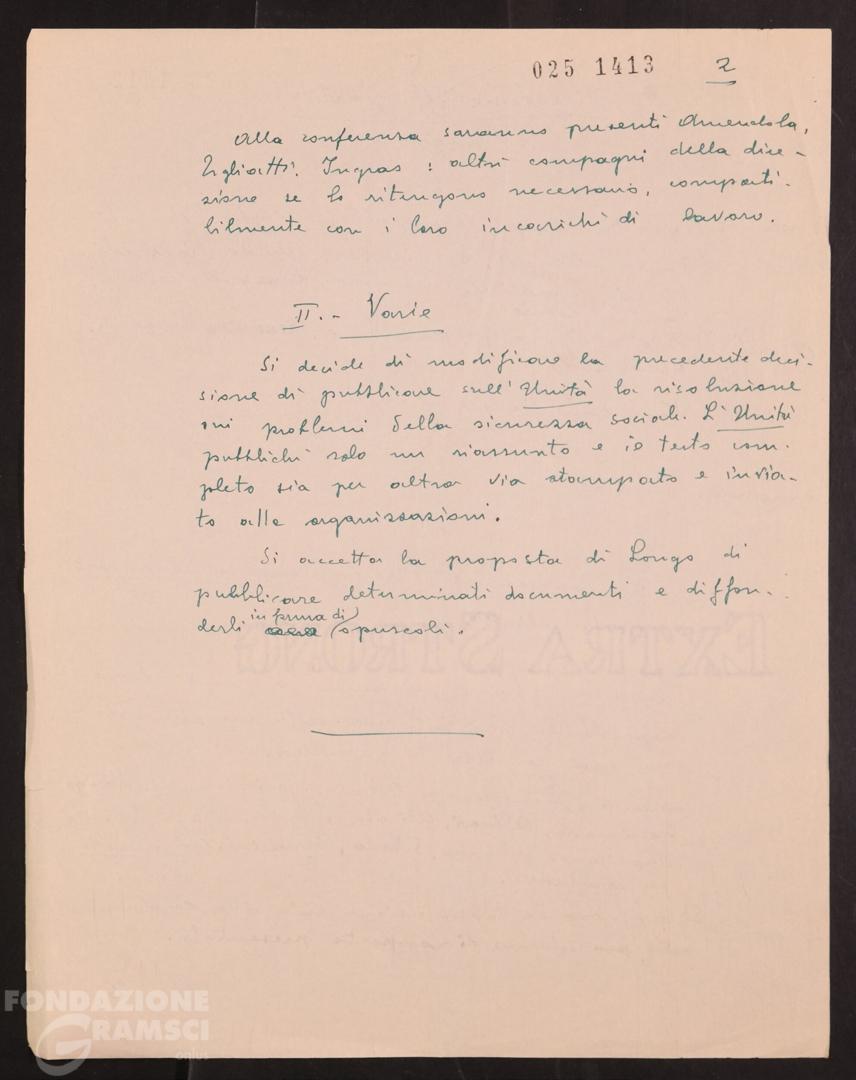 025 1413 2
Alla conferenza saranno presenti Amendola,
Togliatti. Ingrao: altri compagni della dire-
zione se lo ritengono necessario, compati-
bilmente con i loro incarichi di lavoro.
II.- Varie
Si decide di modificare la precedente deci-
sione di pubblicare sull'Unità la risoluzione
sui problemi della sicurezza sociale. L'Unità
pubblichi solo un riassunto e il testo com-
pleto sia per altra via stampato e invia-
to alle organizzazioni.
Si accetta la proposta di Longo di
pubblicare determinati documenti e diffon-
derli in forma di opuscoli.
EXTRA STRONG
FONDAZIONE
GRAMSCI
onlus